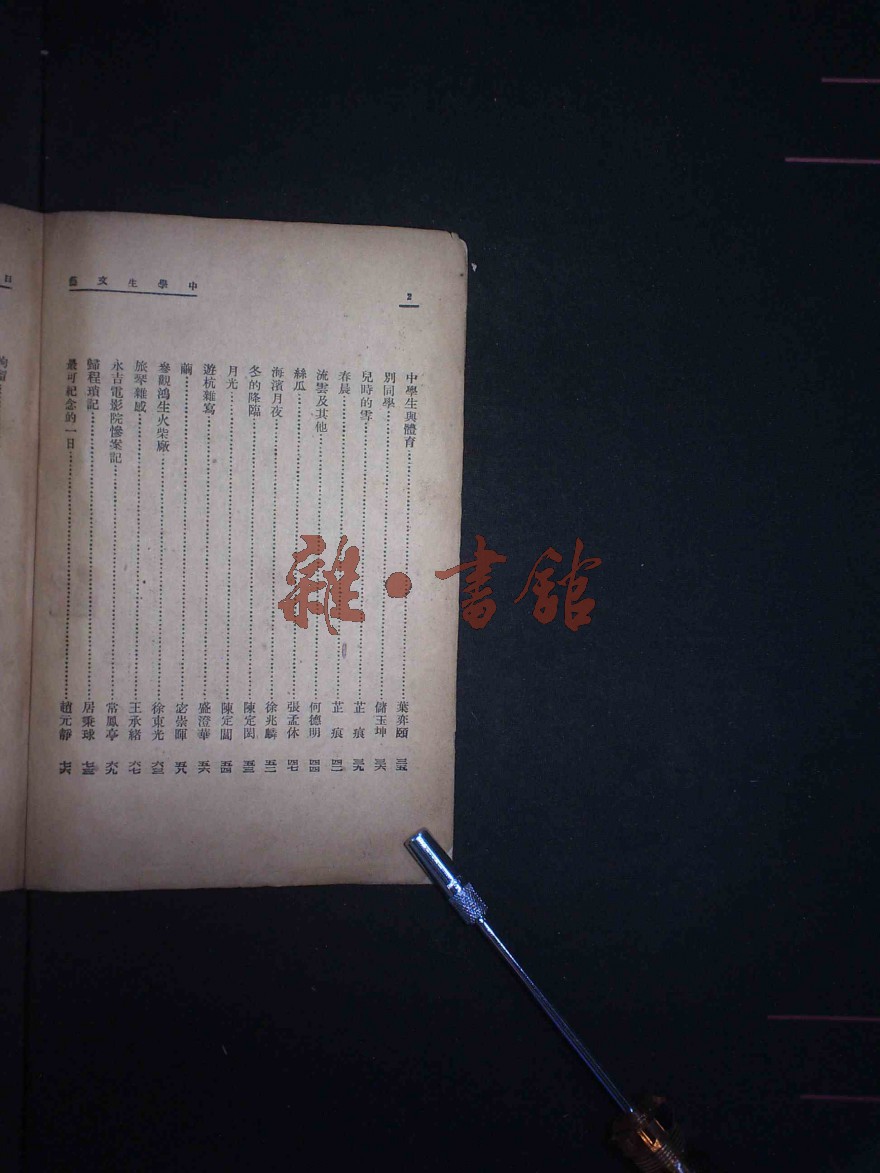 中學生文藝
2
中學生與體育 葉弈頤 三五
別同學 儲玉坤 三六
兒時的雪 芷痕 三九
春晨 芷痕 四二
流雲及其他 何德明 四四
絲瓜 張孟休 四七
海濱月夜 徐兆麟 五二
冬的降臨 陳定閎 五三
月光 陳定閎 五四
遊杭雜寫 盛澄華 五六
繭 宓崇暉 五八
參觀鴻生火柴廠 徐東光 六三
旅琴雜感 王承緒 六七
永吉電影院慘案記 常鳳亭 六九
歸程瑣記 居秉球 七三
最可紀念的一日 趙元靜 七六
目
雜·書館